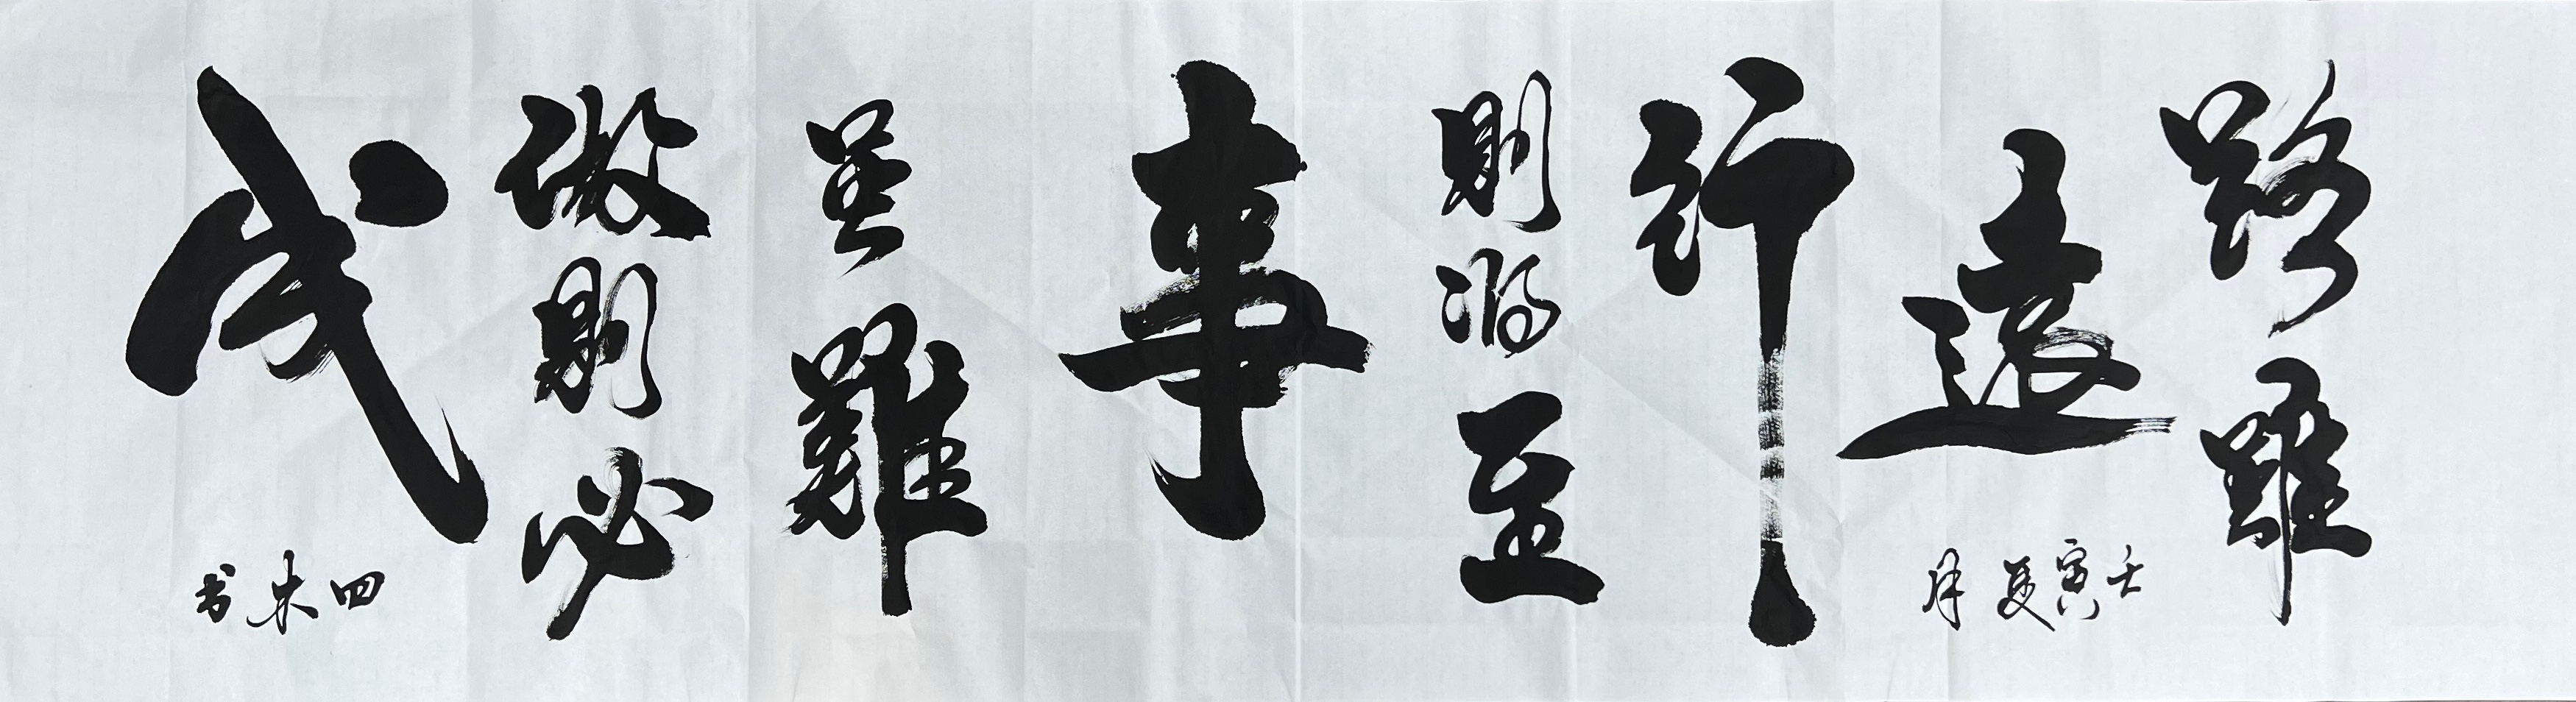 路雖
遠
行
則将至
事
虽難
做則必
成
壬寅夏月
四木书